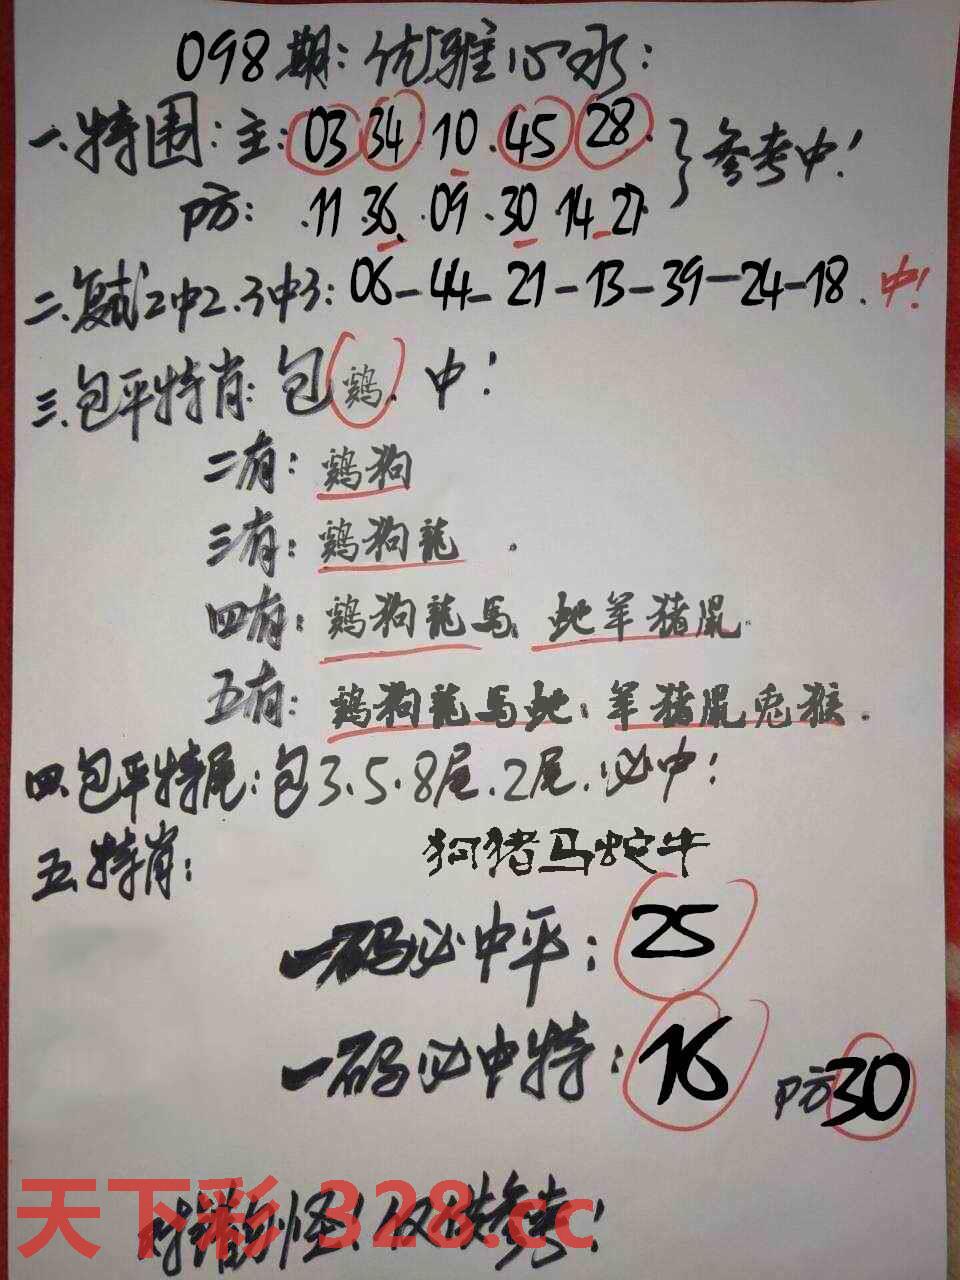 098期:优雅心水:
一.特围:主:03 34 10.45 28. }参考中!
防: .11 36. 09 .30 .14 21.
二.复式2中2.3中3:06-44-21-13-39-24-18.中!
三.包平特肖:包鷄.中!
二有:鷄狗
三有:鷄狗龍.
四有:鷄狗龍马.蛇羊猪鼠.
五有:鷄狗龍马蛇.羊猪鼠兔猴.
四.包平特尾:包3.5.8尾.2尾.必中!
五.特肖:狗猪马蛇牛
一码必中平:25
一码必中特:16 防30
对错别怪!仅供参考!
天下彩 328.cc